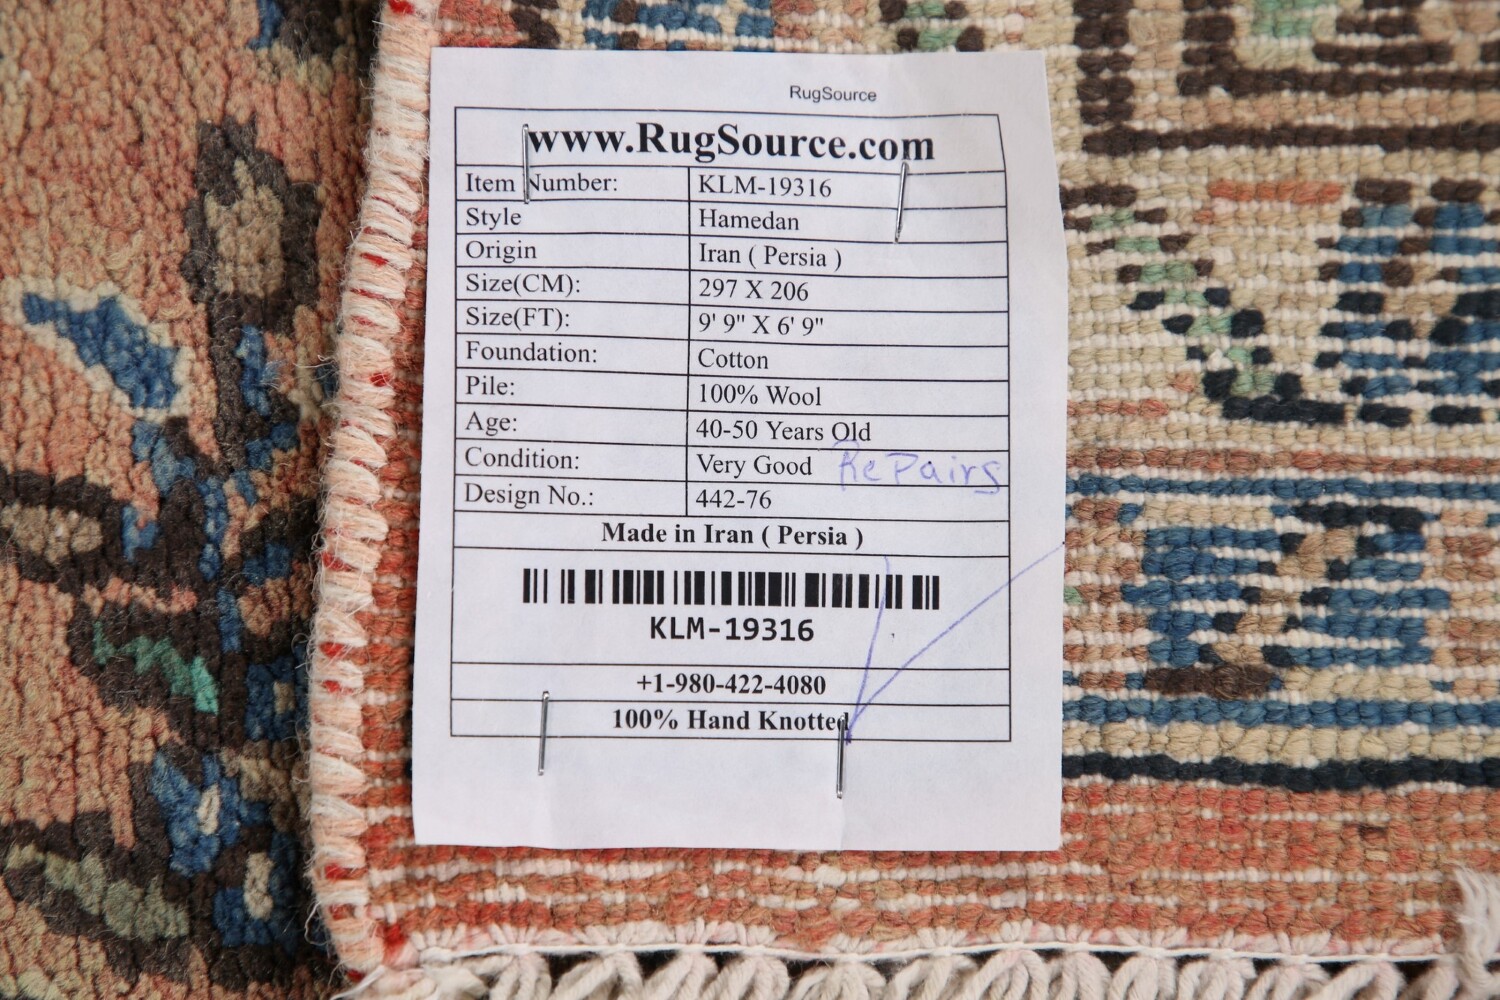 RugSource
www.RugSource.com
Item Number: KLM-19316
Style Hamedan
Origin Iran ( Persia )
Size(CM): 297 X 206
Size(FT): 9' 9" X 6' 9"
Foundation: Cotton
Pile: 100% Wool
Age: 40-50 Years Old
Condition: Very Good RePairs
Design No.: 442-76
Made in Iran ( Persia )
KLM-19316
+1-980-422-4080
100% Hand Knotted